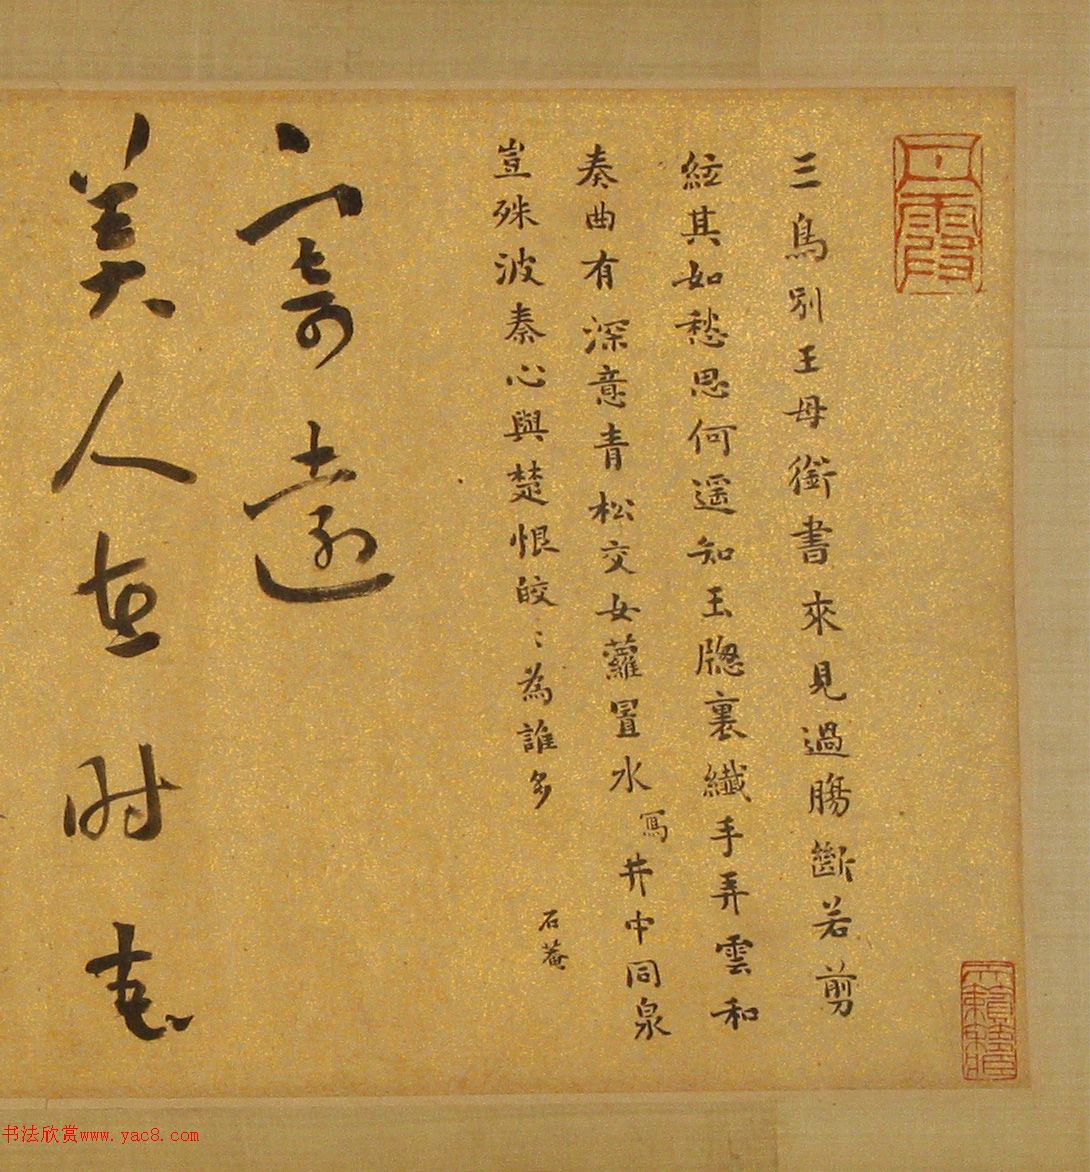 三鳥別王母銜書來見過腸斷若剪
絃其如愁思何遥知玉牕裏纖手弄雲和
奏曲有深意青松交女蘿置水寫井中同泉
豈殊波秦心與楚恨皎〻為誰多
石菴
寄遠
美人在時花
书法欣赏www.yac8.com